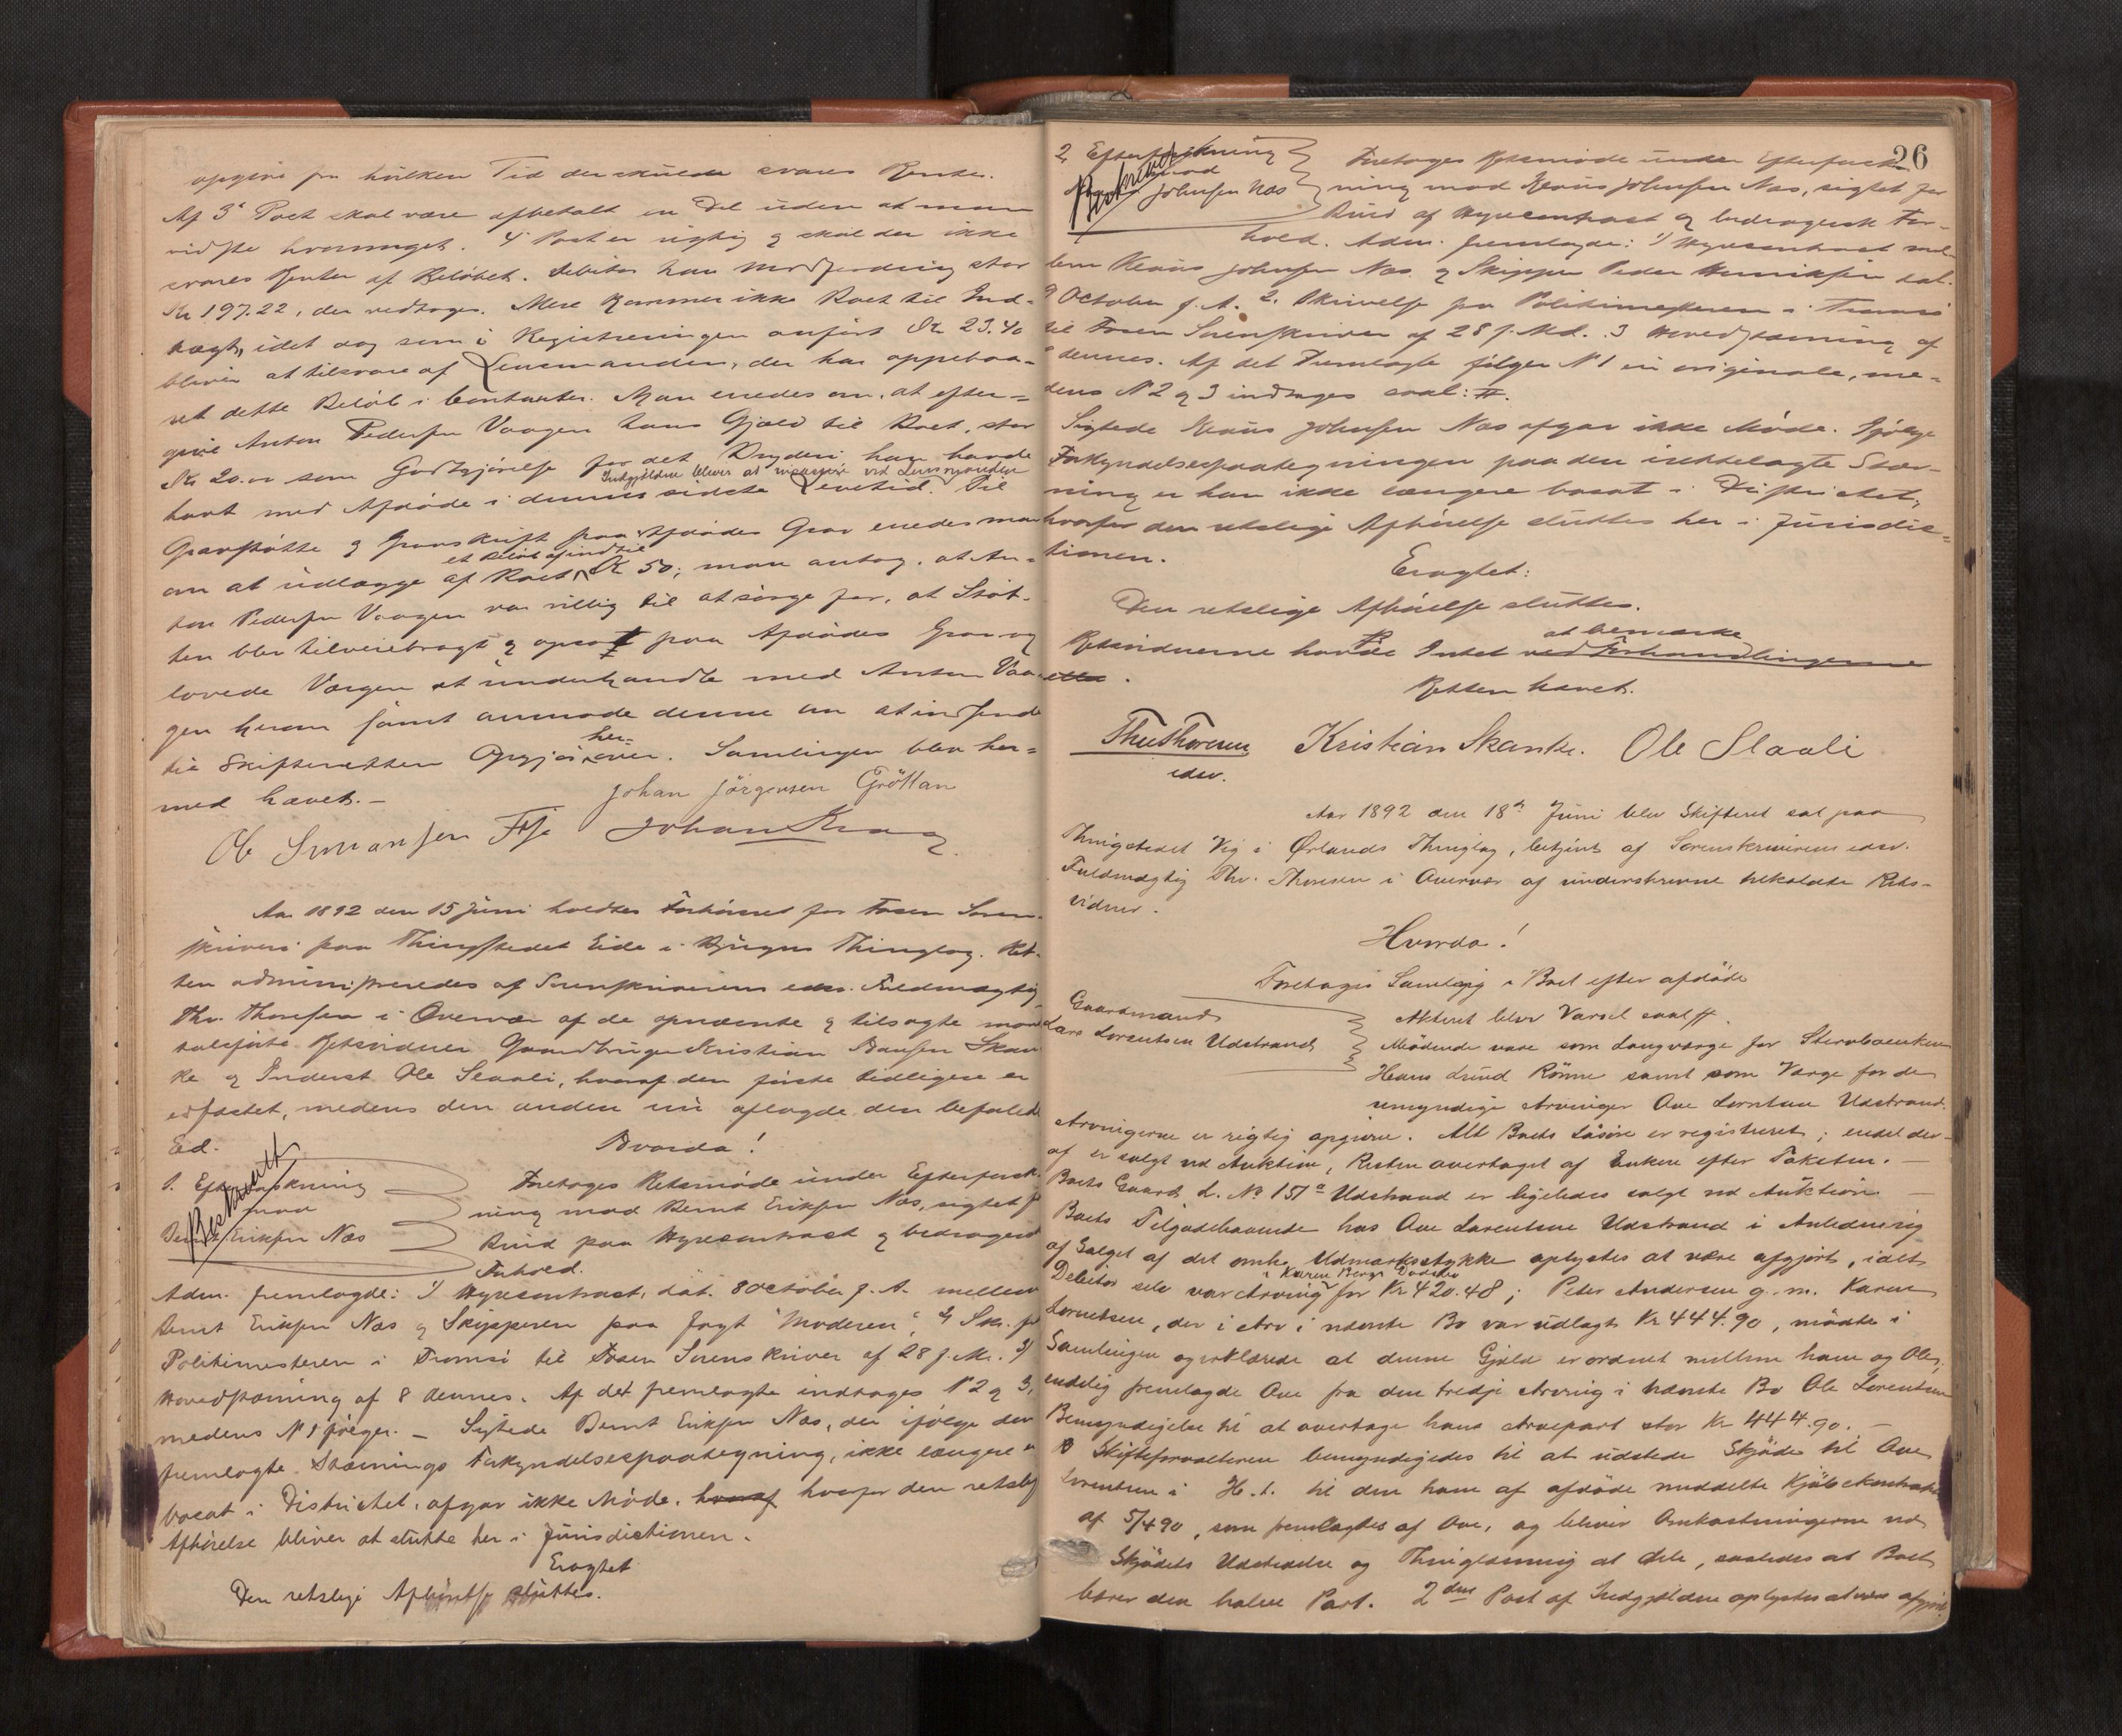 opgive fra hvilken Tid der skulde svares Rente.
Af 3' Post skal være afbetalt en Del uden at man
vidste hvormeget. 4 Post er rigtig og skal der ikke
svares Renter af Beløbet. Debitor har Modfordring stor
Kr 197.22, der vedtoges. Mere kommer ikke Boet til Ind-
tægt, idet dog som i Registreringen anført Kr 23.40
bliver at tilsvare af Lensmanden, der har oppebaa-
ret dette Beløb i Contanter. Man enedes om, at efter-
give Anton Pedersen Vaagen hans Gjæld til Boet, stor
Kr 20.00 som Godtgjørelse for det Bryderi han havde
Indgjælden bliver at ved Lensmanden
havt med Afdøde i dennes sidste Levetid. Til
Gravstøtte og Gravskrift paa Afdødes Grav enedes man
et Beløb af indtil
om at udlægge af Boet Kr 50; man antog, at An-
ton Pedersen Vaagen var villig til at sørge for, at Støt-
ten blev tilveiebragt og opsat paa Afdødes Grav og
lovede Værgen at underhandle med Anton Vaa-
gen herom samt anmode denne om at indsende
her-
til Skifteretten Opgjør over. Samlingen blev her-
med hævet. –
Johan Jörgensen Gröttan
Ole Simonsen Johan Krag
Aar 1892 den 15 Juni holdtes Forhørsret for Fosen Soren-
skriveri paa Thingstedet Eide i Bjugns Thinglag. Ret-
ten administreredes af Sorenskriverens edsv. Fuldmægtig
Thv. Thoresen i Overvær af de opnævnte og tilsagte mand-
talsførte Retsvidner Gaardbruger Kristian Hansen Skan-
ke og Inderst Ole Slaali, hvoraf den første tidligere er
edfæstet, medens den anden nu aflagde den befalede
Ed.
Hvorda!
1. Efterforskning
mod
Bernt Eriksen Næs
Beskrevet
Foretoges Retsmøde under Efterforsk-
ning mod Bernt Eriksen Næs, sigtet for
Brud paa Hyrecontract og bedragersk
Forhold.
Adm. fremlagde: 1) Hyrecontract, dat. 8 October f. A. mellem
Bernt Eriksen Næs og Skipperen paa Jagt "Moderen", 2) Skr. fra
Politimesteren i Tromsø til Fosen Sorenskriver af 28 f. M. 3)
Hovedstævning af 8 dennes. Af det fremlagte indtages N 2 og 3,
medens N 1 følger. – Sigtede Bernt Eriksen Næs, der ifølge den
fremlagte Stævnings Forkyndelsespaategning, ikke længere er
bosat i Districtet, afgav ikke Møde, hvoraf hvorfor den retslige
Afhørelse bliver at slutte her i Jurisdictionen.
Eragtet
Den retslige Afhørelse sluttes.
26
2, Efterforskning
mod
Johnsen Næs
Beskrevet
Foretoges Retsmøde under Efterforsk-
ning mod Johnsen Næs, sigtet for
Brud af Hyrecontract og bedragersk For-
hold. Adm. fremlagde: 1) Hyrecontract mel-
lem Johnsen Næs og Skipper Peder Henriksen dat.
9 October f. A. 2. Skrivelse fra Politimesteren i Tromsø
til Fosen Sorenskriver af 28 f. Md. 3 Hovedstævning af
8 dennes. Af det Fremlagte følger N 1 in originale, me-
dens N 2 og 3 indtages saal:
Sigtede Johnsen Næs afgav ikke Møde. Ifølge
Forkyndelsespaategningen paa den irettelagte Stæv-
ning er han ikke længere bosat i Districtet,
hvorfor den retslige Afhørelse sluttes her i Jurisdic-
tionen.
Eragtet:
Den retslige Afhørelse sluttes.
at bemærke
Retsvidnerne havde Intet ved Forhandlingerne
Retten hævet.
Thv Thoresen Kristian Skanke. Ole Slaali
edsv.
Aar 1892 den 18de Juni blev Skifteret sat paa
Thingstedet Vig i Ørlands Thinglag, betjent af Sorenskriverens edsv.
Fuldmægtig Thv. Thoresen i Overvær af underskrevne tilkaldte Rets-
vidner.
Hvorda!
Foretoges Samling i Boet efter afdøde
Gaardmand
Lars Lorentsen Udstrand
Akteret blev Varsel saal
Mødende vare som Laugværge for Stervboenken
Hans Lund Rönne samt som Værge for de
umyndige Arvinger Ove Lorentsen Udstrand.
Arvingerne er rigtig opgivne. Alt Boets Løsøre er registreret; endel der-
af er solgt ved Auktion, Resten overtaget af Enken efter Taksten. –
Boets Gaard L. No 151 a Udstrand er ligeledes solgt ved Auktion –
Boets Tilgodehavende hos Ove Lorentsen Udstrand i Anledning
af Salget af det omh. Udmarksstykke oplystes at være afgjort, idet
i Karen Bergs Dødsbo
Debitor selv var Arving for Kr 420.48; Peter Andersen g. m. Karen
Lorentsen, der i Arv i nævnte Bo var udlagt Kr 444.90, mødte i
Samlingen og erklærede at denne Gjæld er ordnet mellem ham og Ole,
endelig fremlagde Ove fra den tredje Arving i nævnte Bo Ole Lorentsen
Bemyndigelse til at overtage hans Arvepart stor Kr 444.90. –
Skifteforvalteren bemyndigedes til at udstede Skjøde til Ove
Lorentsen i H. t. til den ham af afdøde meddelte Kjøbekontrakt
af 5/4 90, som fremlagdes af Ove, og bliver Omkostningerne ved
Skjødets Udstedelse og Thinglæsning at dele, saaledes at Boet
bærer den halve Part. 2den Post af Indgjælden oplystes at være afgjort